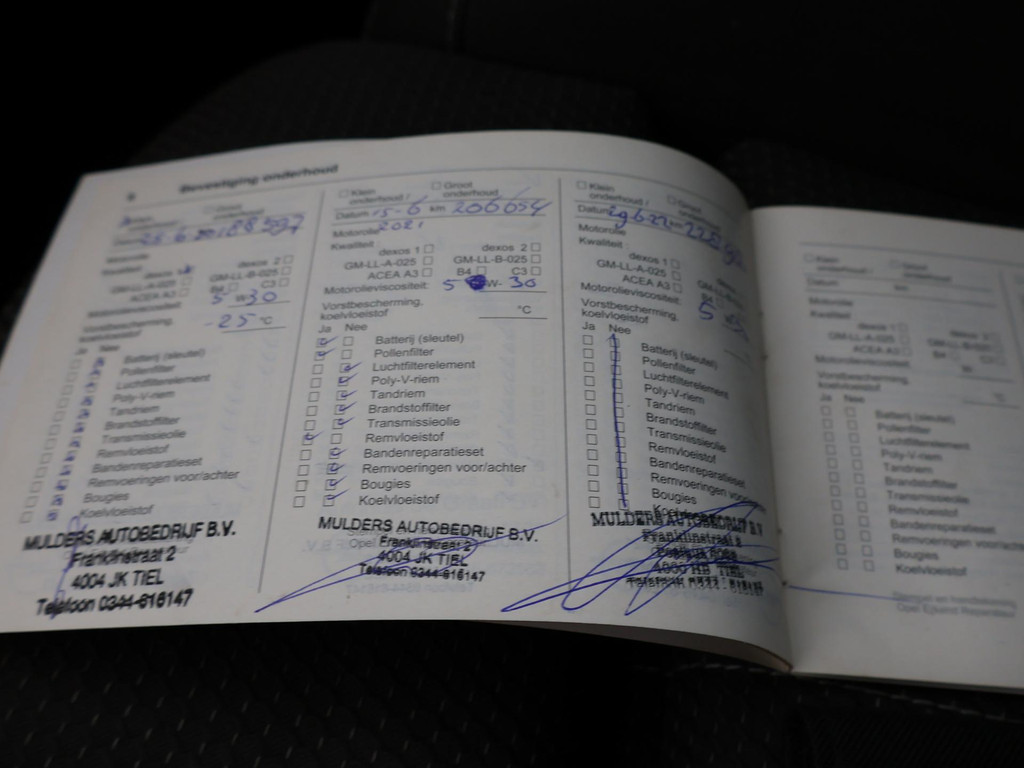 Bevestiging onderhoud
Klein onderhoud / Groot onderhoud
25-6-20 188597
Motorolie
Kwaliteit
dexos 2
GM-LL-A-025 GM-LL-B-025
ACEA A3 C3
Motorolieviscositeit: 5 W 30
Vorstbescherming, koelvloeistof -25 °C
Ja Nee
Batterij (sleutel)
Pollenfilter
Luchtfilterelement
Poly-V-riem
Tandriem
Brandstoffilter
Transmissieolie
Remvloeistof
Bandenreparatieset
Remvoeringen voor/achter
Bougies
Koelvloeistof
MULDERS AUTOBEDRIJF B.V.
Franklinstraat 2
4004 JK TIEL
Telefoon 0344-616147
Klein onderhoud / Groot onderhoud
Datum 15-6 km 206654
Motorolie 2021
Kwaliteit
dexos 1 dexos 2
GM-LL-A-025 GM-LL-B-025
ACEA A3 B4 C3
Motorolieviscositeit: 5 W- 30
Vorstbescherming, koelvloeistof °C
Ja Nee
Batterij (sleutel)
Pollenfilter
Luchtfilterelement
Poly-V-riem
Tandriem
Brandstoffilter
Transmissieolie
Remvloeistof
Bandenreparatieset
Remvoeringen voor/achter
Bougies
Koelvloeistof
MULDERS AUTOBEDRIJF B.V.
Opel Franklinstraat 2
4004 JK TIEL
Telefoon 0344-616147
Klein onderhoud / Groot onderhoud
Datum 29-6-22
Motorolie
Kwaliteit
dexos 1
GM-LL-A-025
ACEA A3 B4
Motorolieviscositeit: 5
Vorstbescherming, koelvloeistof
Ja Nee
Batterij (sleutel)
Pollenfilter
Luchtfilterelement
Poly-V-riem
Tandriem
Brandstoffilter
Transmissieolie
Remvloeistof
Bandenreparatieset
Remvoeringen
Bougies
MULDERS AUTOBEDRIJF B.V.
Franklinstraat 2
4000 HB TIEL
Telefoon 0344 - 616147
Klein onderhoud / Groot onderhoud
Datum km
Motorolie
Kwaliteit
dexos 1 dexos 2
GM-LL-A-025 GM-LL-B-025
ACEA A3 B4 C3
Vorstbescherming, koelvloeistof °C
Ja Nee
Batterij (sleutel)
Pollenfilter
Luchtfilterelement
Poly-V-riem
Tandriem
Brandstoffilter
Transmissieolie
Remvloeistof
Bandenreparatieset
Remvoeringen voor/achter
Bougies
Koelvloeistof